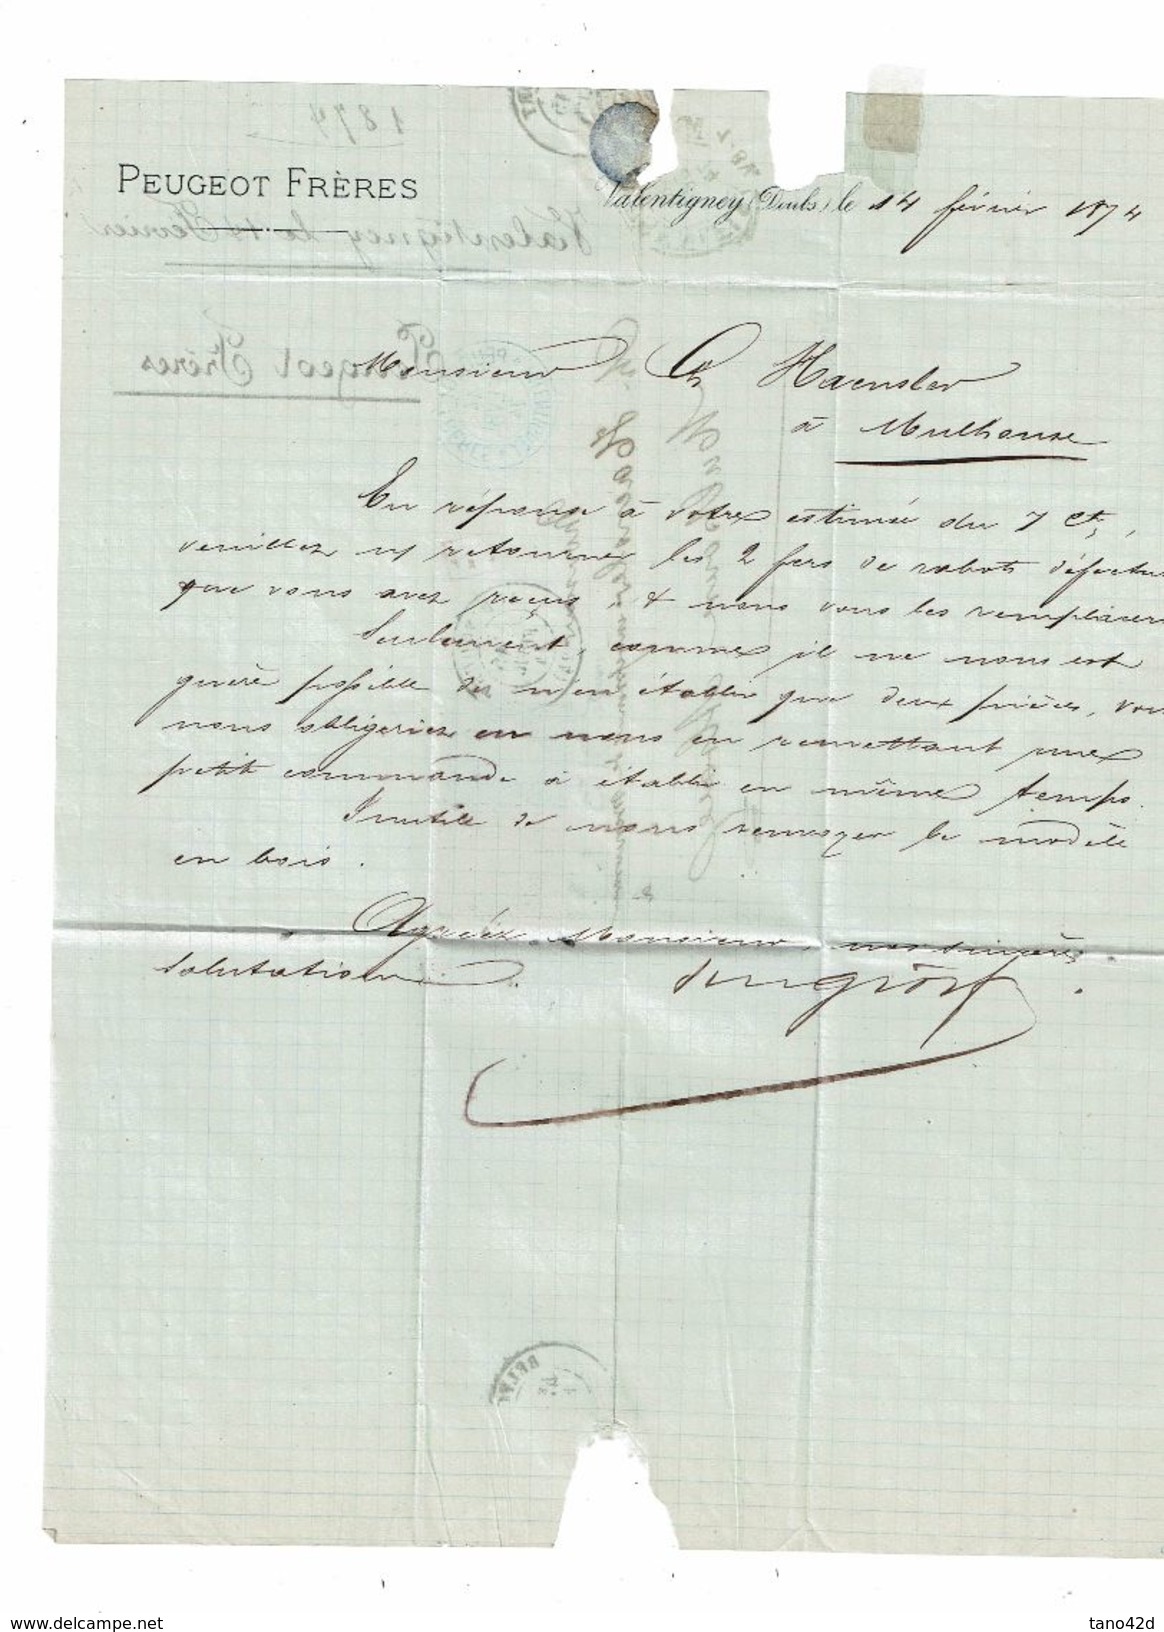 PEUGEOT FRÈRES
Valentigney (Doubs) le 14 février 1874
Monsieur Ch Haensler
à Mulhouse
En réponse à votre estimée du 7 ct,
veuillez ns retourner les 2 fers de rabots défectu
que vous avez reçus, & nous vous les remplacer
Seulement, comme il ne nous est
guère possible de n'en établir que deux pièces, vous
nous obligeriez en nous en remettant une
petite commande à établir en même temps.
Inutile de nous renvoyer le modèle
en bois.
Agréez Monsieur, nos sincères
salutations.
delcampe.net
tano42d